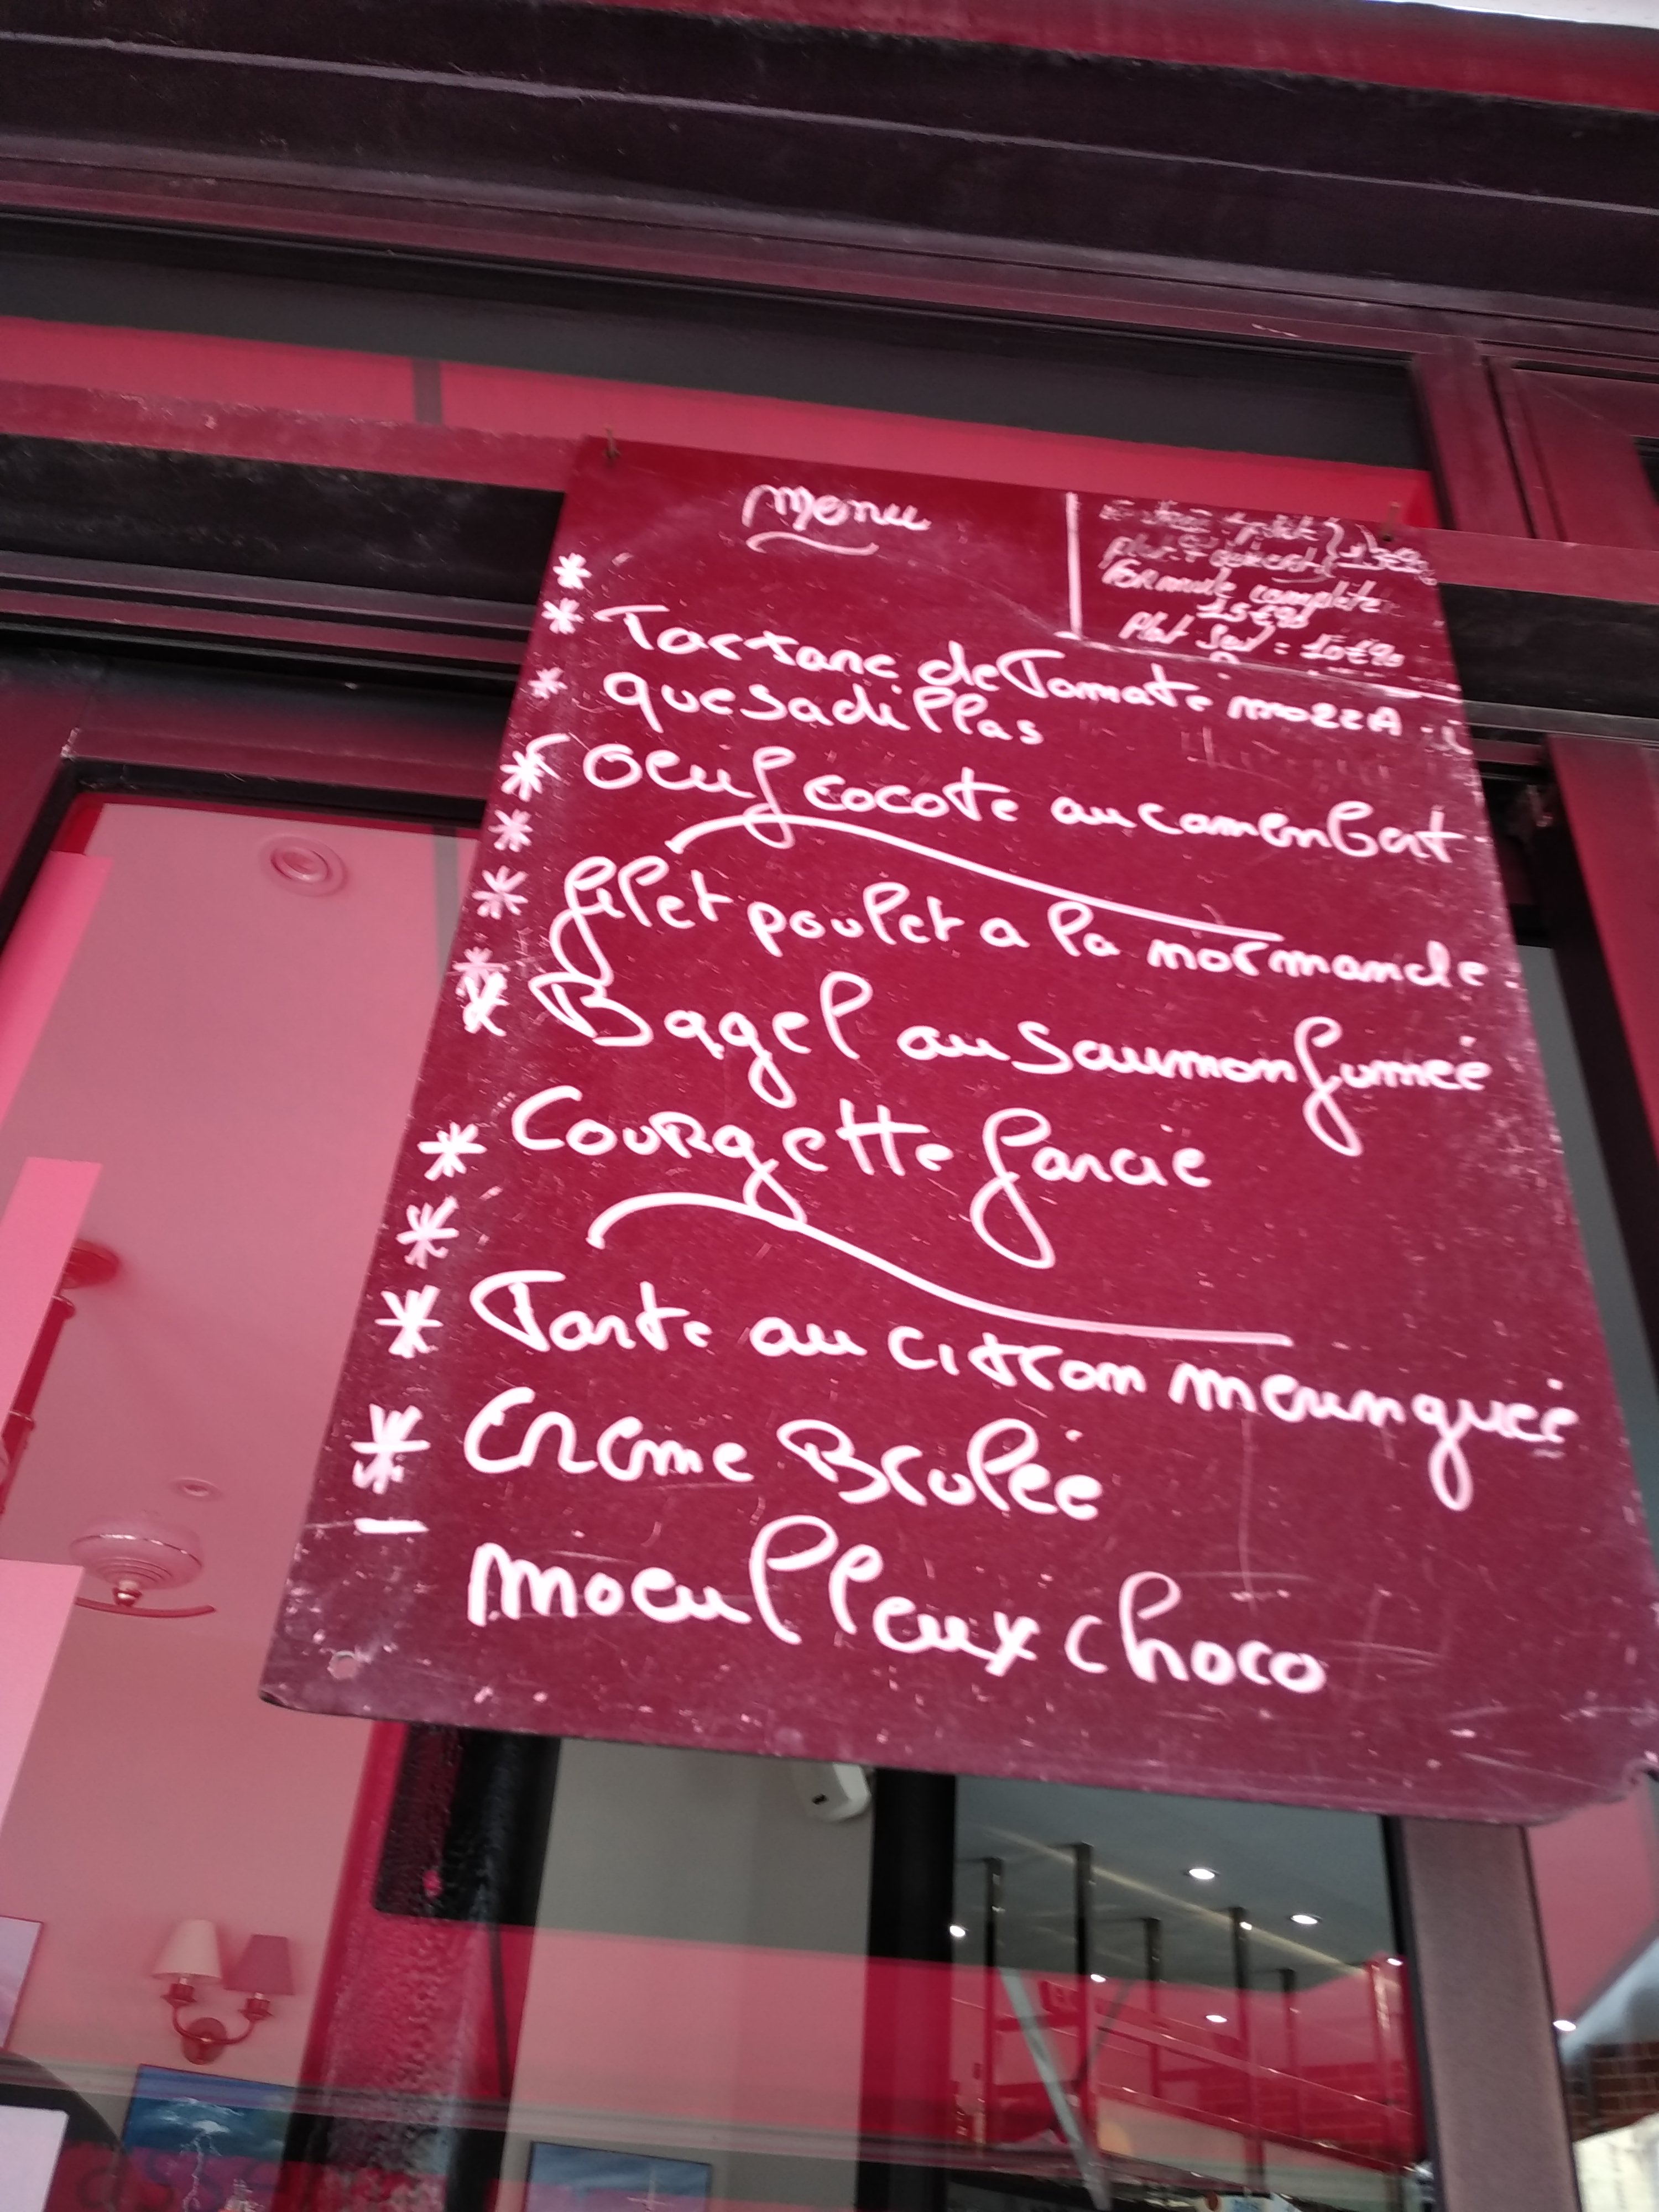 Menu
Entrée + plat
Plat + dessert } 13€90
Formule complète
15€90
Plat Seul = 10€90
* Tartare de Tomate mozzA
* quesadillas
* Oeuf cocote au camenbert
* filet poulet a la normande
* Bagel au Saumon fumée
* Courgette farcie
* Tarte au citron meringuée
* Crème Brulée
* moeulleux choco